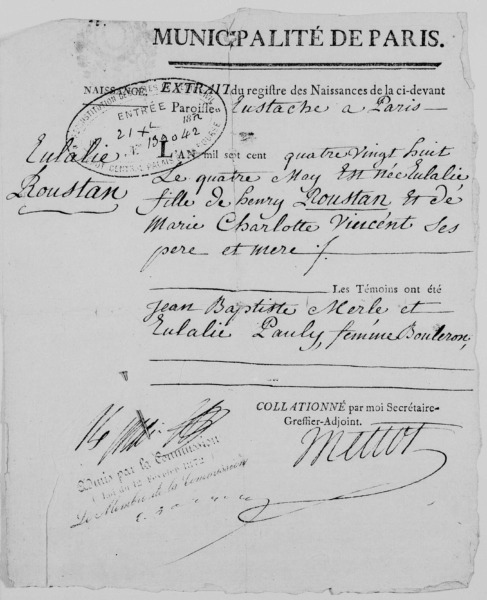 MUNICIPALITÉ DE PARIS.
NAISSANCE. EXTRAIT du registre des Naissances de la ci-devant
Paroisse Eustache a Paris
ENTRÉE
21 Xbre 1872
N° 159042
Eulalie
Roustan
L'AN mil sept cent quatre vingt huit
Le quatre May Est née Eulalie
fille de henry Roustan Et dé
Marie Charlotte Vincént Ses
pere et mere ./.
Les Témoins ont été
Jean Baptiste Merle et
Eulalie Pauly, femme Bouleron,
COLLATIONNÉ par moi Secrétaire-
Greffier-Adjoint.
Mettot
Admis par la Commission
(Loi du 12 Février 1872)
Le Membre de la Commission